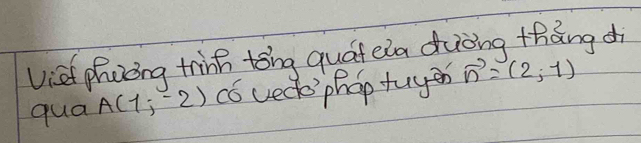 Viết phương trình tổng quát của đường thẳng đi
qua A(1; -2) có vectơ pháp tuyến n⃗ = (2; 1)